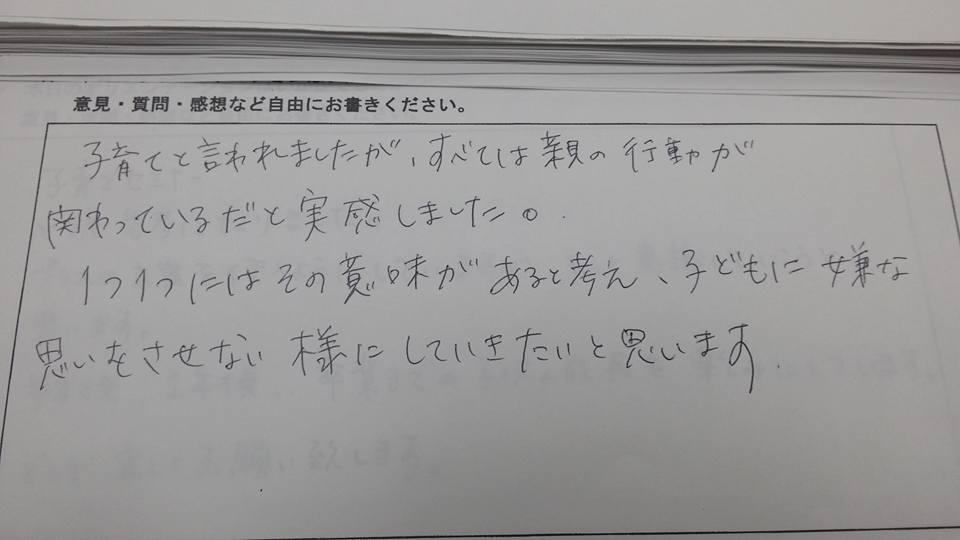 意見・質問・感想など自由にお書きください。
子育てと言われましたが、すべては親の行動が
関わっているだと実感しました。
1つ1つにはその意味があると考え、子どもに嫌な
思いをさせない様にしていきたいと思います.